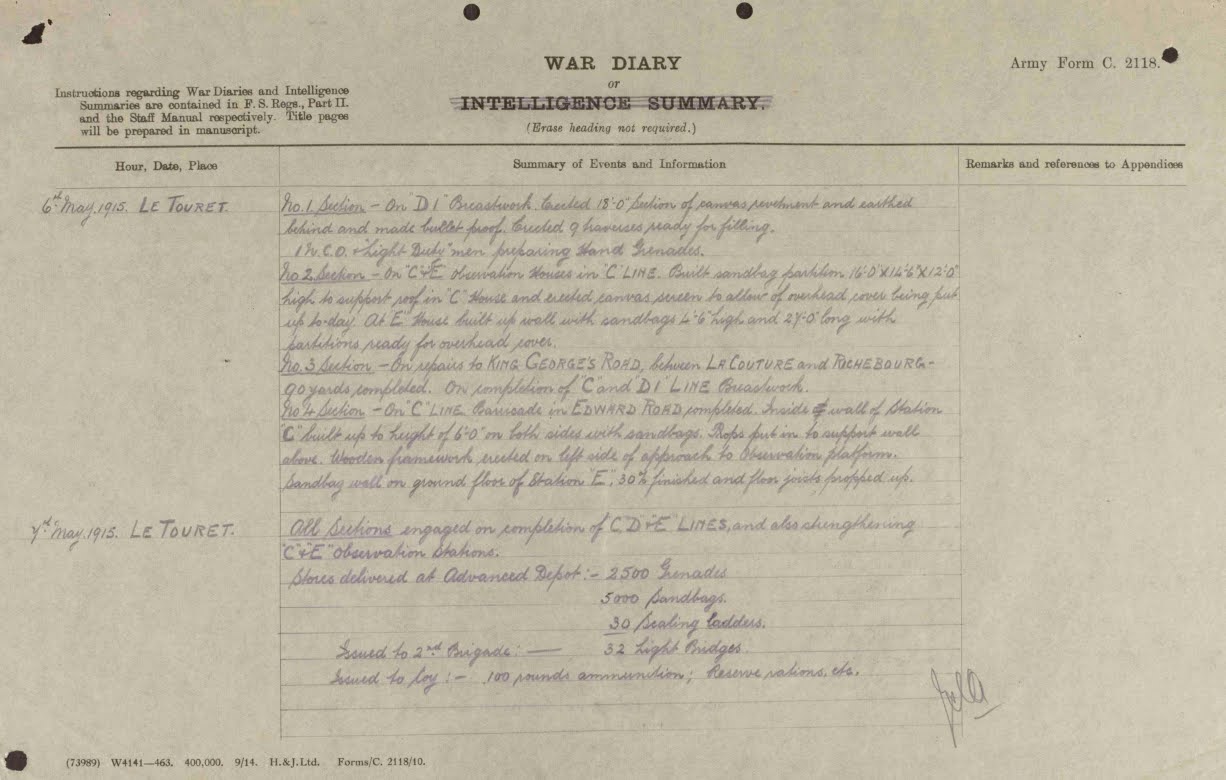 WAR DIARY
or
INTELLIGENCE SUMMARY.
(Erase heading not required.)
Army Form C. 2118.
Instructions regarding War Diaries and Intelligence
Summaries are contained in F. S. Regs., Part II.
and the Staff Manual respectively. Title pages
will be prepared in manuscript.
Hour, Date, Place
Summary of Events and Information
Remarks and references to Appendices
6th May. 1915. LE TOURET.
No. 1 Section - On "D1" Breastwork. Erected 18'-0" Section of canvas revetment and earthed
behind and made bullet proof. Erected 9 traverses ready for filling.
1 N.C.O. + "Light Duty" men preparing Hand Grenades.
No. 2 Section - On "C" & "E" Observation Houses in "C" LINE. Built sandbag partition 16'-0" X 14'-6" X 12'-0"
high to support roof in "C" House and erected canvas screen to allow of overhead cover being put
up to-day. At "E" House built up wall with sandbags 4'-6" high and 27'-0" long with
partitions ready for overhead cover.
No. 3 Section - On repairs to KING GEORGE'S ROAD, between LA COUTURE and RICHEBOURG -
90 yards completed. On completion of "C" and "D1" LINE Breastwork.
No. 4 Section - On "C" LINE Barricade in EDWARD ROAD completed. Inside wall of Station
"C" built up to height of 6'-0" on both sides with sandbags. Props put in to support wall
above. Wooden framework erected on left side of approach to observation platform.
Sandbag wall on ground floor of Station "E", 30% finished and floor joists propped up.
7th May. 1915. LE TOURET.
All Sections engaged on completion of "C", "D" & "E" LINES, and also strengthening
"C" & "E" Observation Stations.
Stores delivered at Advanced Depot :- 2500 Grenades
5000 Sandbags.
30 Scaling ladders.
Issued to 2nd Brigade : — 32 Light Bridges.
Issued to Coy :- 100 rounds ammunition; Reserve rations, etc.
(73989) W4141—463. 400,000. 9/14. H.&J.Ltd. Forms/C. 2118/10.